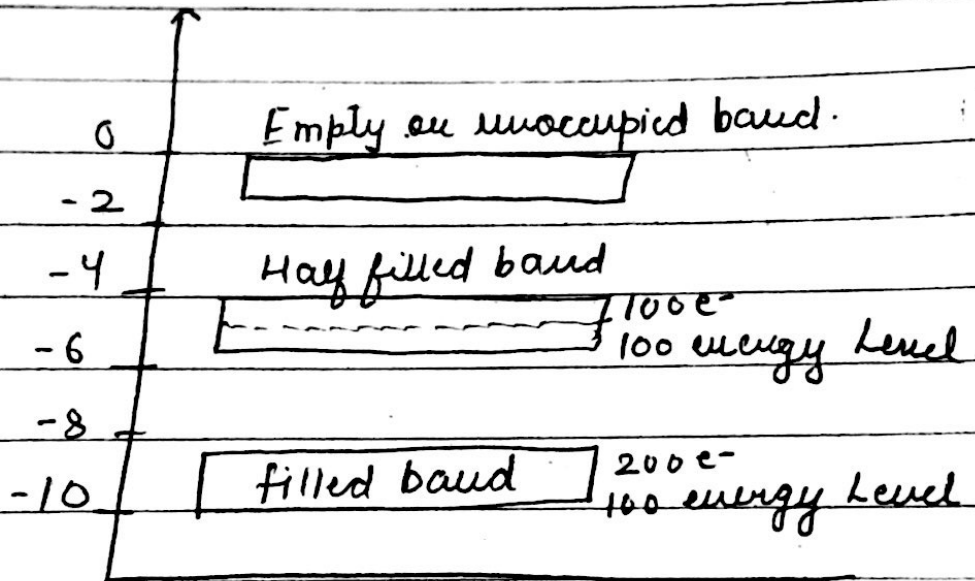 0 Empty or unoccupied band.
-2
-4 Half filled band
100 e-
-6 100 energy Level
-8
filled band 200 e-
-10 100 energy Level